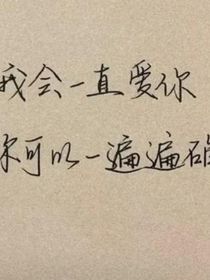 我会一直爱你
你可以一遍遍